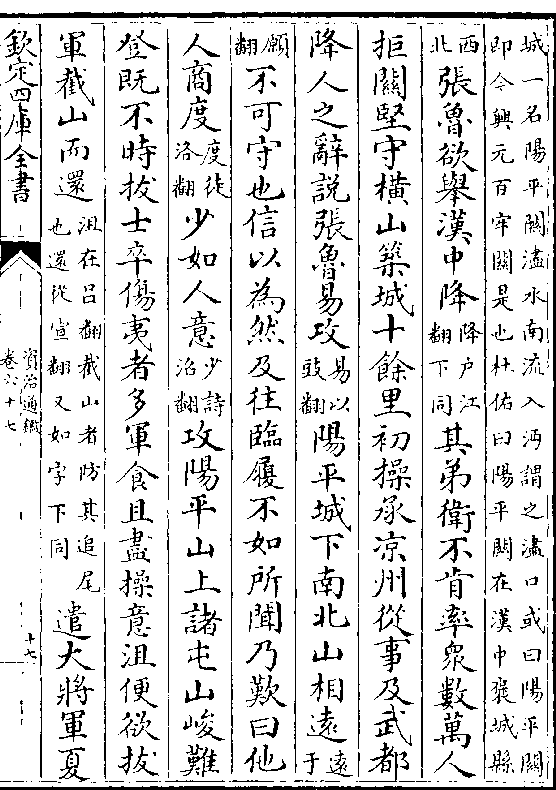 城一名陽平關濜水南流入沔謂之濜口或曰陽平關
即今興元百牢關是也杜佑曰陽平關在漢中襃城縣
西北張魯欲舉漢中降降户江翻下同其弟衛不肯率衆數萬人
拒關堅守横山築城十餘里初操承凉州從事及武都
降人之辭說張魯易攻易以豉翻陽平城下南北山相遠遠于
願翻不可守也信以為然及往臨履不如所聞乃歎曰他
人商度度徒洛翻少如人意少詩沼翻攻陽平山上諸屯山峻難
登既不時拔士卒傷夷者多軍食且盡操意沮便欲拔
軍截山而還沮在呂翻截山者防其追尾也還從宣翻又如字下同遣大將軍夏
欽定四庫全書
資治通鑑
卷六十七
十七